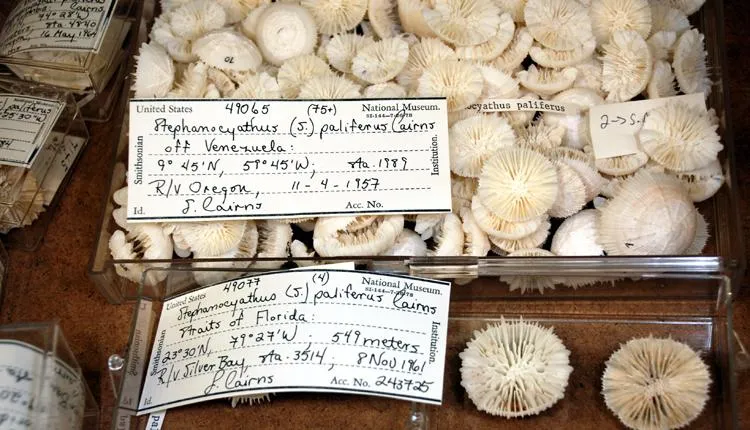 74°28'W
sta 4840
16 May 1964
paliferus
United States 49065 (75+) National Museum.
SI-144—7-28-78
Stephanocyathus (S.) paliferus Cairns
off Venezuela:
9° 45'N, 59° 45'W; sta. 1989
R/V Oregon, 11-4-1957
Id. S. Cairns Acc. No.
Smithsonian
Institution.
ocyathus paliferus
2→S.f
United States 49077 (4) National Museum.
Stephanocyathus (S.) paliferus Cairns
Straits of Florida:
23°30'N, 79°27'W; 549 meters
R/V Silver Bay, sta. 3514, 8 Nov 1961
Id. S. Cairns Acc. No. 243725
Smithsonian
Institution